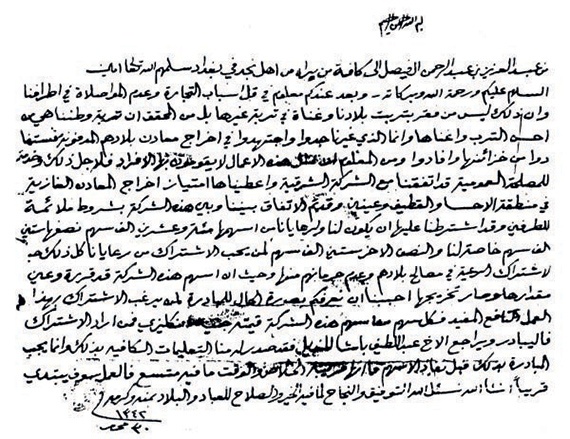 بسم الله الرحمن الرحيم
من عبد العزيز بن عبد الرحمن الفيصل الى كافة من يراه من اهل نجد في بغداد سلمهم الله تعالى امين
السلام عليكم ورحمة الله وبركاته وبعد عندكم معلوم في قل اسباب التجارة وعدم المواصلاة في اطرافنا
وان ذلك ليس من فقر بتربت بلادنا وغناة في تربة غيرها بل من المحقق ان تربة وطننا هي من
احسن الترب واغناها وانما الذي غيرنا جدوا واجتهدوا في اخراج معادن بلادهم المدفونة فستفا
دوا من خزائنها وافادوا ومن المعلوم ان مثل هذه الاعمال لا يقومون بها الافراد فلاجل ذلك
للمصلحة العمومية قد اتفقنا مع الشركة الشرقية واعطيناها امتياز اخراج المعادن الغازية
في منطقة الاحسا والقطيف وعينين وقد تم الاتفاق بيننا وبين هذه الشركة بشروط ملائمة
للطرفين وقد اشترطنا عليها ان يكون لنا ولرعايانا من اسهمها مئة وعشرين الف سهم نصفها ستين
الف سهم خاصة لنا والنصف الاخر ستين الف سهم لمن يحب الاشتراك من رعايانا كل ذلك حبا
لاشتراك الرعية في مصالح بلادهم وعدم حرمانهم منها وحيث ان اسهم هذه الشركة قد قررة وعين
مقدارها وصار تخريجها احببنا ان نعرفكم بصورة الحال للمبادرة لمن يرغب الاشتراك بهذا
العمل النافع المفيد فكل سهم من اسهم هذه الشركة قيمته انكليزي فمن اراد الاشتراك
فاليبادر ويراجع الاخ عبد اللطيف باشا المنديل فقد صدر له منا التعليمات الكافيه بذلك وانما يجب
المبادرة بذلك قبل نفاد الاسهم والوقت ما فيه متسع فالعمل سوف يبتدي
قريباً ان شاء الله نسئل الله التوفيق والنجاح لما فيه الخير والصلاح للعباد والبلاد بمنه وكرمه
١٣٤٢
٣٠ محرم